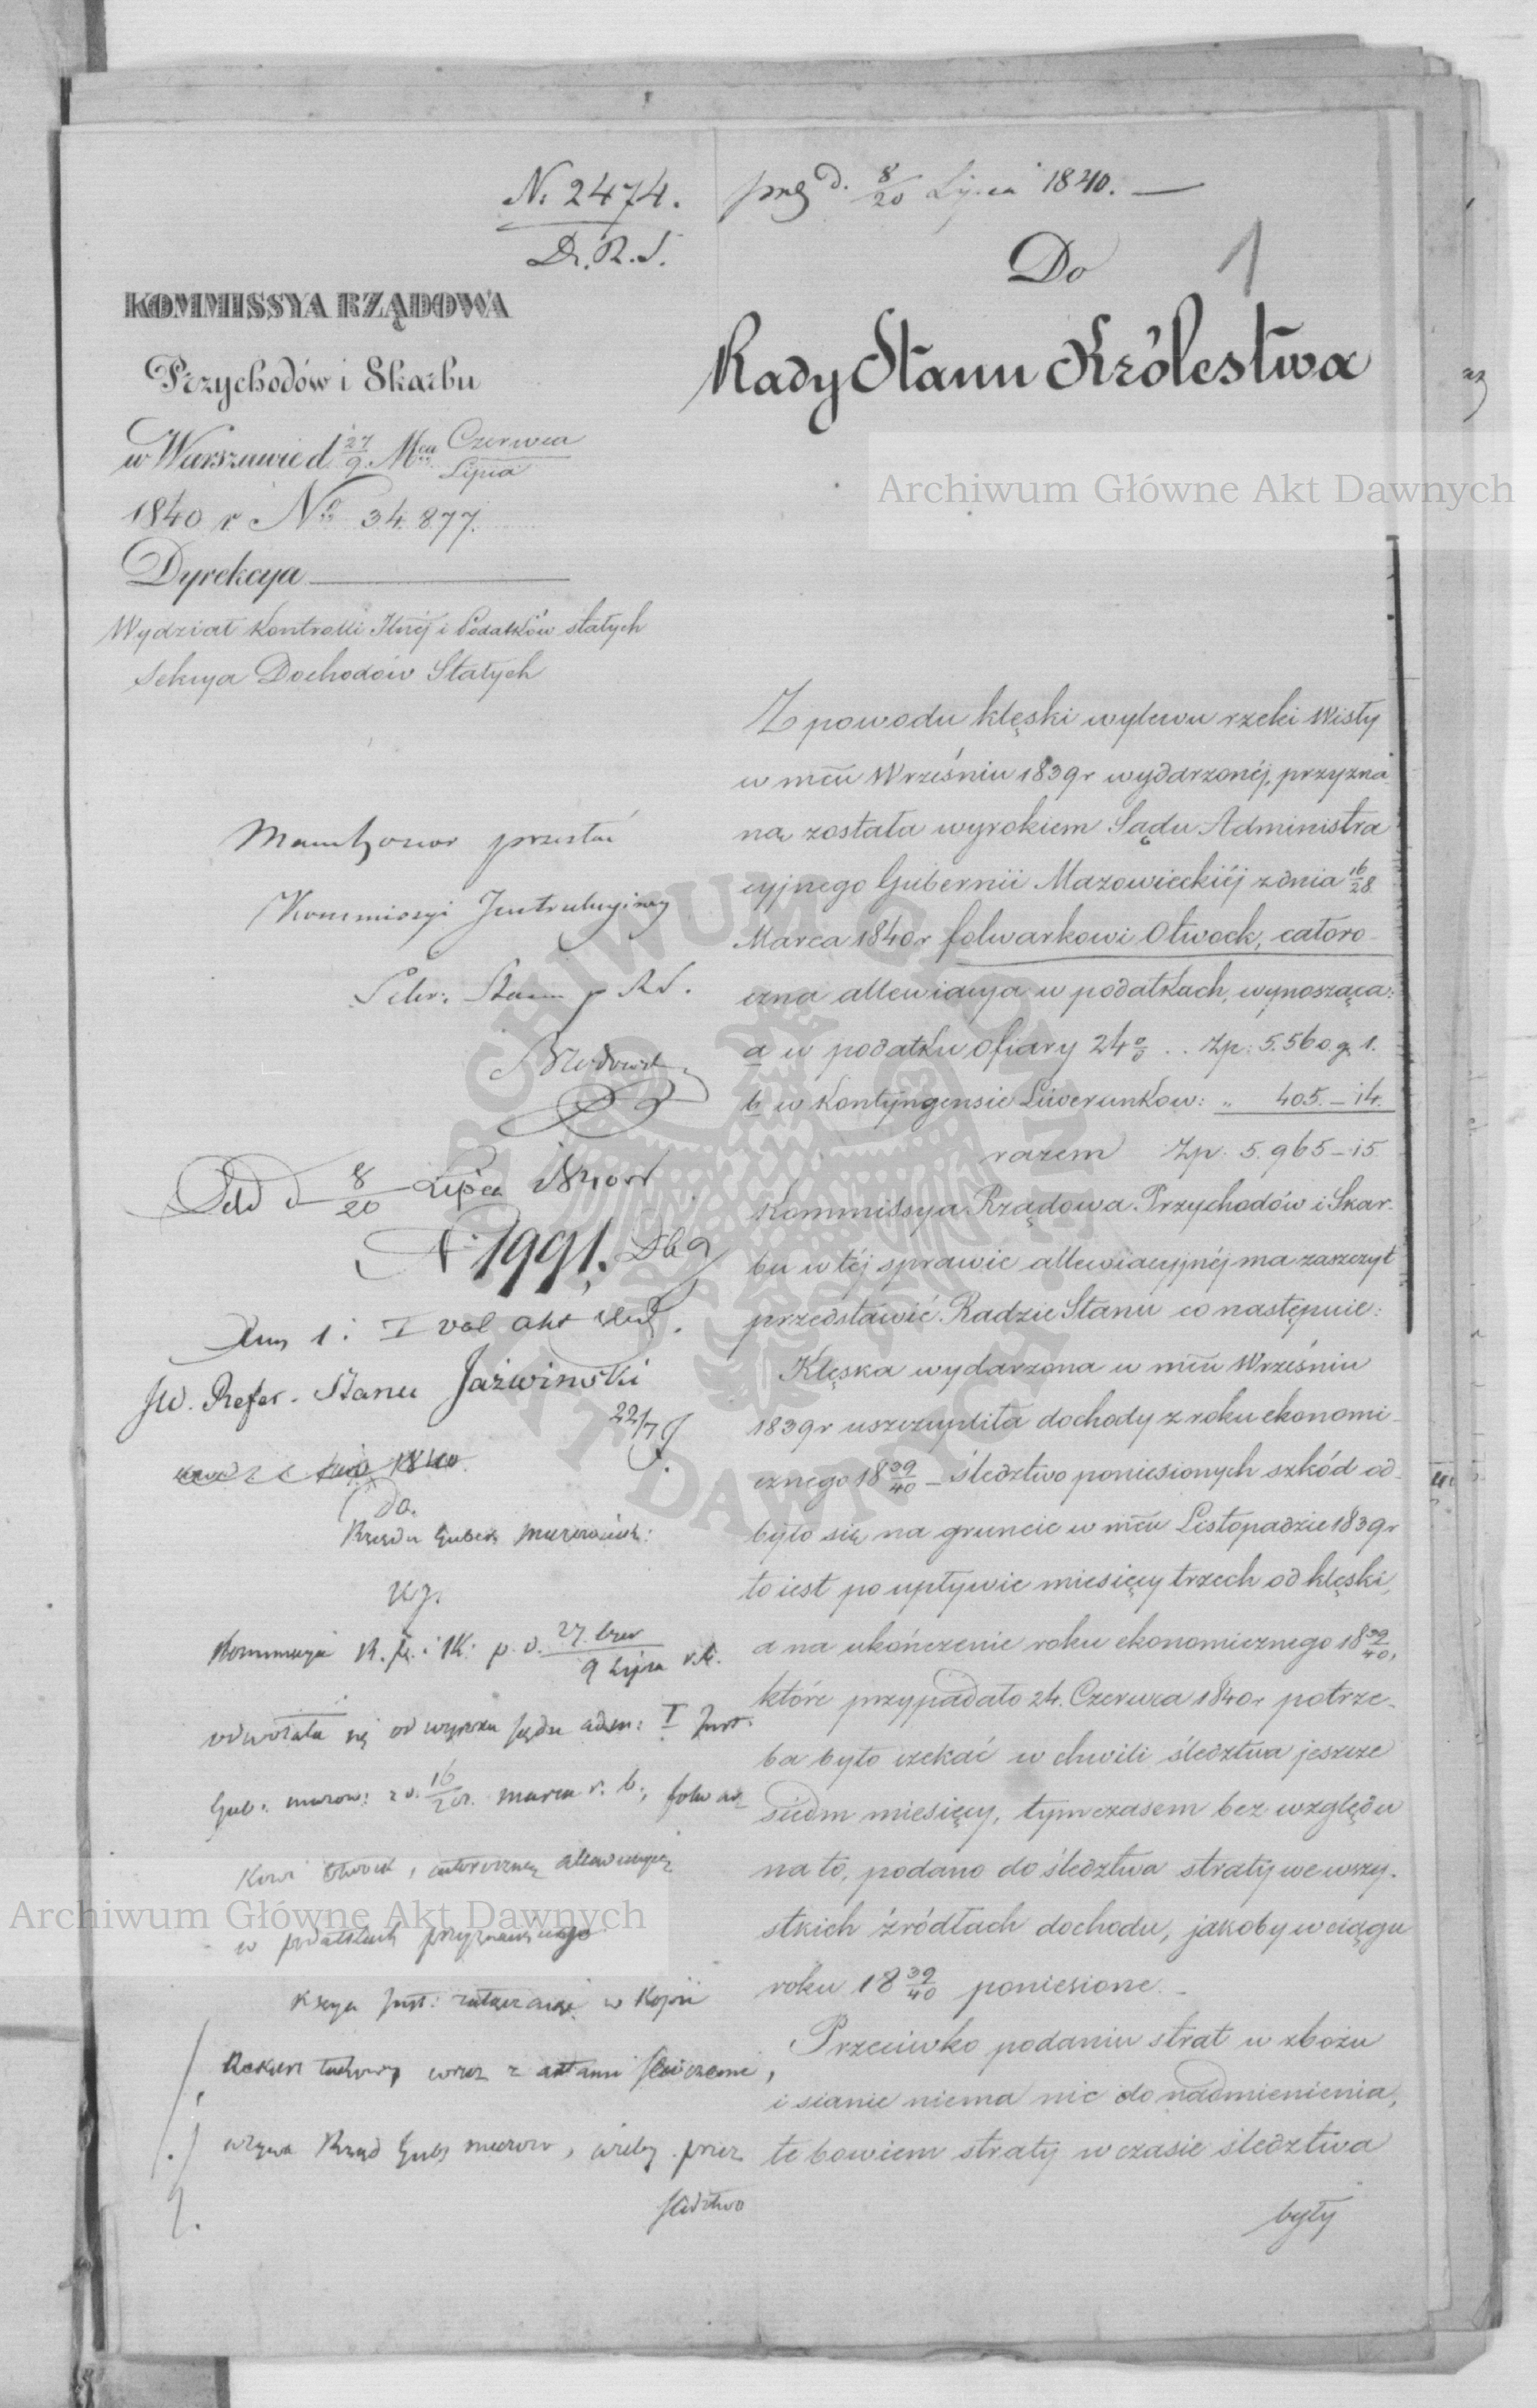 N. 2474.
D. R. S.
d. 8/20 Lipca 1840. —
1
Do
Rady Stanu Królestwa
KOMMISSYA RZĄDOWA
Przychodów i Skarbu
w Warszawie d. 27/9 Mca Czerwca/Lipca
1840 r. No 34.877.
Dyrekcya
Wydział Kontrolli i Podatków stałych
Sekcya Dochodów Stałych
Archiwum Główne Akt Dawnych
Z powodu klęski wylewu rzeki Wisły
w mcu Wrześniu 1839 r wydarzonéj, przyzna
na została wyrokiem Sądu Administra
cyjnego Gubernii Mazowieckiéj z dnia 16/28
Marca 1840 r folwarkowi Otwock, całoro
czna allewiacya w podatkach, wynosząca:
a w podatku ofiary 24 % . . Zp: 5.560 g. 1.
b w Kontyngensie Liwerunkow: „ 405.–14.
razem Zp. 5.965–15
Kommissya Rządowa Przychodów i Skar-
bu w téj sprawie allewiacyjnéj ma zaszczyt
przedstawić Radzie Stanu co następuie:
Klęska wydarzona w mcu Wrześniu
1839 r uszczupliła dochody z roku ekonomi-
cznego 18 39/40 – śledztwo poniesionych szkód od-
było się na gruncie w mcu Listopadzie 1839 r
to iest po upływie miesięcy trzech od klęski,
a na ukończenie roku ekonomicznego 18 39/40,
które przypadało 24. Czerwca 1840 r potrze-
ba było czekać w chwili śledztwa jeszcze
siedm miesięcy, tymczasem bez względu
na to, podano do śledztwa straty we wszy-
stkich źródłach dochodu, jakoby w ciągu
roku 18 39/40 poniesione. –
Przeciwko podaniu strat w zbożu
i sianie niema nic do nadmienienia,
te bowiem straty w czasie śledztwa
były
przesłać
Kommissyi Instrukcyjnej
Sekr: Stanu p. R. S.
8/20 Lipca 1840 r
N 1991.
1. I vol akt
JW. Refer. Stanu Jaźwinski
22/7
1840.
Do.
Rządu Gubern
Kommissya R. P. i SK. p. d. 27. Czer/9 Lipca r. b.
odwołała się od wyroku Sądu adm: I Inst.
Gub: mazow: z d. 16/28. marca r. b., folwar
kowi Otwock, całoroczną allewiacyą
w podatkach przyznaiącego
Archiwum Główne Akt Dawnych
w Kopii
wraz z aktami
wzywa Rząd Gub mazow, ażeby przez
śledztwo
ARCHIWUM GŁÓWNE AKT DAWNYCH